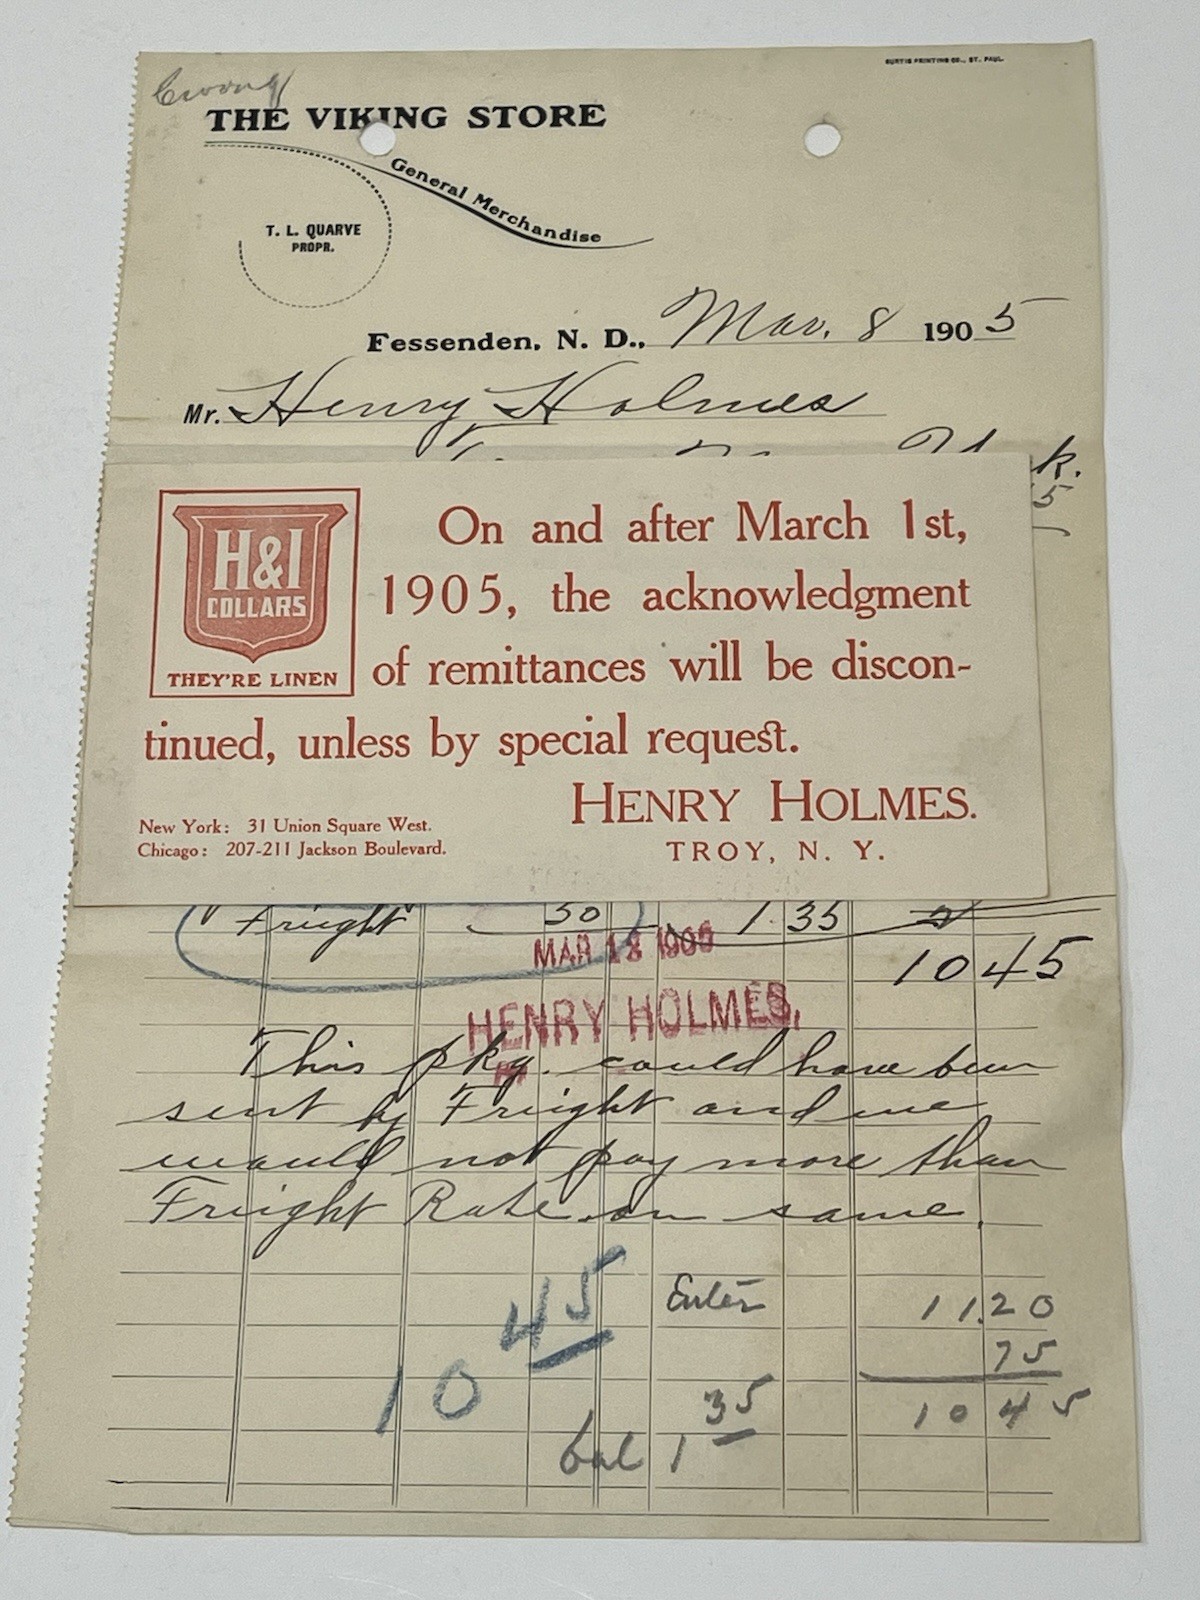 CURTIS PRINTING CO., ST. PAUL.
THE VIKING STORE
General Merchandise
T. L. QUARVE
PROPR.
Fessenden, N. D., Mar. 8 1905
Mr. Henry Holmes
k.
5
H&I
COLLARS
THEY'RE LINEN
On and after March 1st,
1905, the acknowledgment
of remittances will be discon-
tinued, unless by special request.
HENRY HOLMES.
TROY, N. Y.
New York: 31 Union Square West.
Chicago: 207-211 Jackson Boulevard.
Freight 50 1.35
MAR 18 1905
1045
HENRY HOLMES,
This pkg. could have been
sent by Freight and we
would not pay more than
Freight Rate on same.
10 45
Enter 11.20
75
1045
bal 1 35